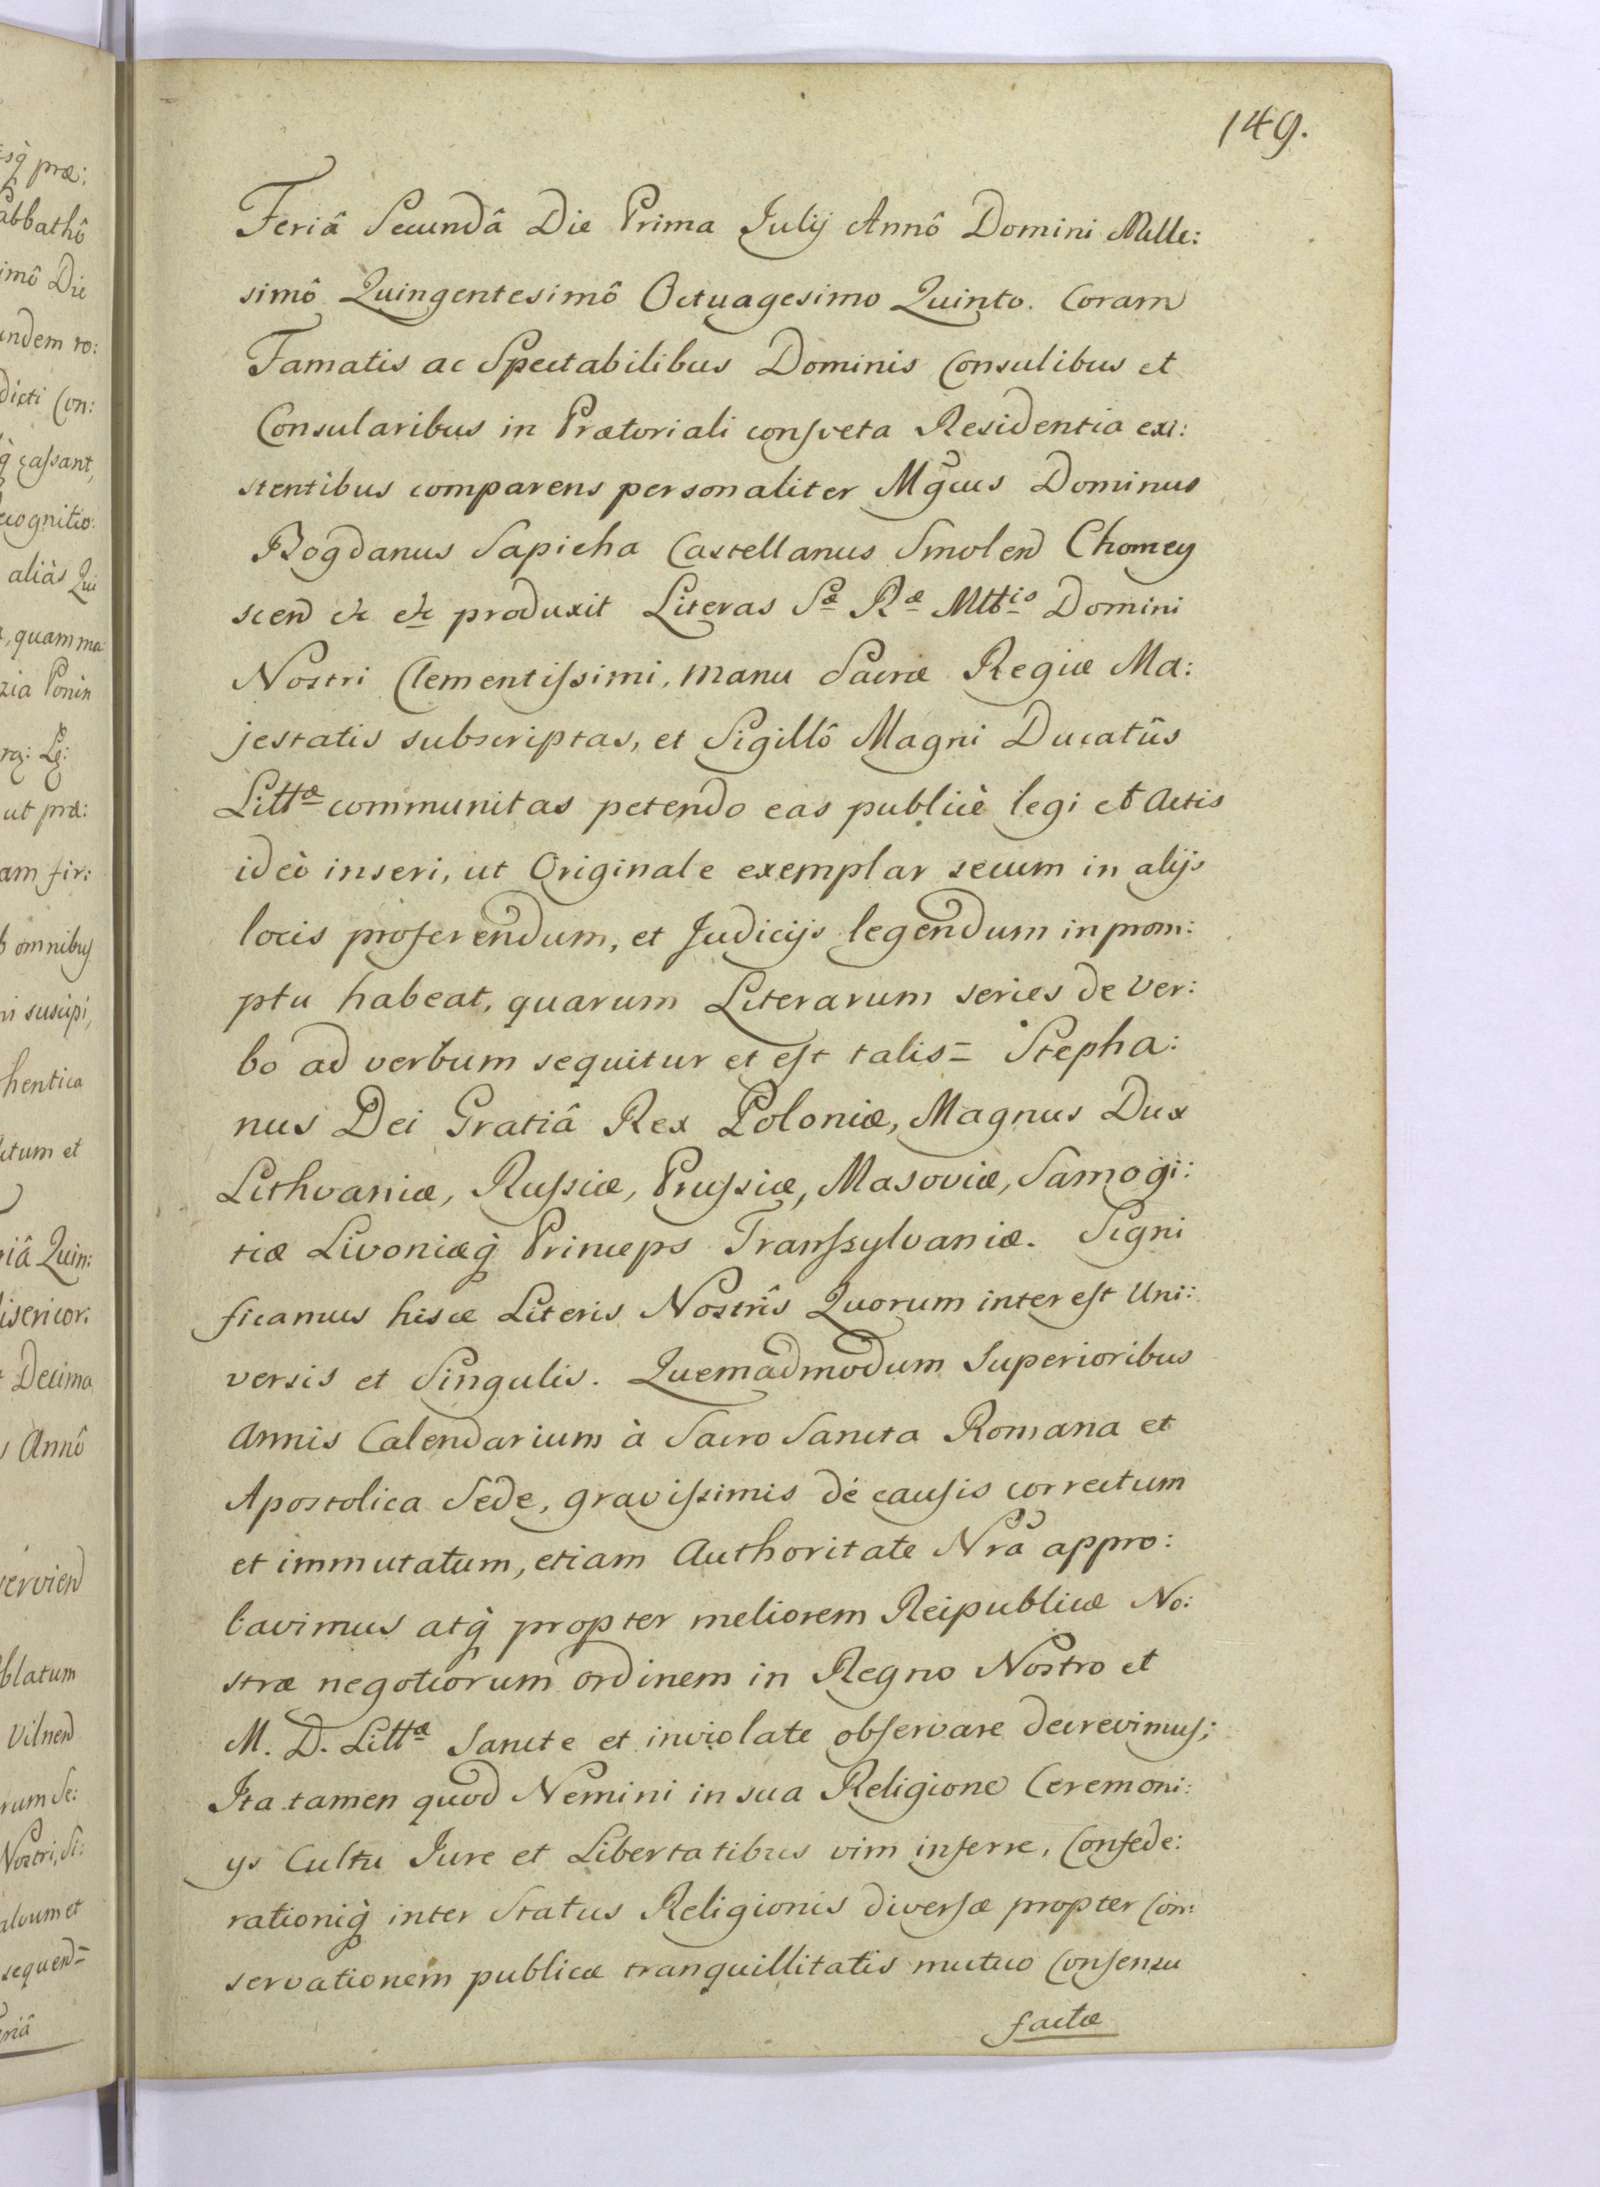 149.
Feriâ Secundâ Die Prima Julij Annô Domini Mille:
simô Quingentesimô Octuagesimo Quinto. Coram
Famatis ac Spectabilibus Dominis Consulibus et
Consularibus in Prætoriali consveta Residentia exi:
stentibus comparens personaliter Mgcus Dominus
Bogdanus Sapieha Castellanus Smolen Chomey
scen &c &c produxit Literas Sæ Ræ Mttis Domini
Nostri Clementissimi, manu Sacræ Regiæ Ma:
jestatis subscriptas, et Sigillô Magni Ducatûs
Littæ communitas petendo eas publicè legi et Actis
ideò inseri, ut Originale exemplar secum in alijs
locis proferendum, et Judicijs legendum in prom:
ptu habeat, quarum Literarum series de ver:
bo ad verbum sequitur et est talis= Stepha:
nus Dei Gratiâ Rex Poloniæ, Magnus Dux
Lithvaniæ, Russiæ, Prussiæ, Masoviæ, Samogi:
tiæ Livoniæq̀ Princeps Transsylvaniæ. Signi
ficamus hisce Literis Nostris Quorum interest Uni:
versis et Singulis. Quemadmodum Superioribus
Annis Calendarium à Sacro Sancta Romana et
Apostolica Sede, gravissimis dè causis correctum
et immutatum, etiam Authoritate Nra appro:
bavimus atq̀ propter meliorem Reipublicæ No:
stræ negotiorum ordinem in Regno Nostro et
M. D. Littæ Sancte et inviolate observare decrevimus;
Ita tamen quod Nemini in sua Religione Ceremoni:
ys Cultu Jure et Libertatibus vim inferre, Confede:
rationiq̀ inter Status Religionis diversæ propter Con:
servationem publicæ tranquillitatis mutuo Consensu
factæ